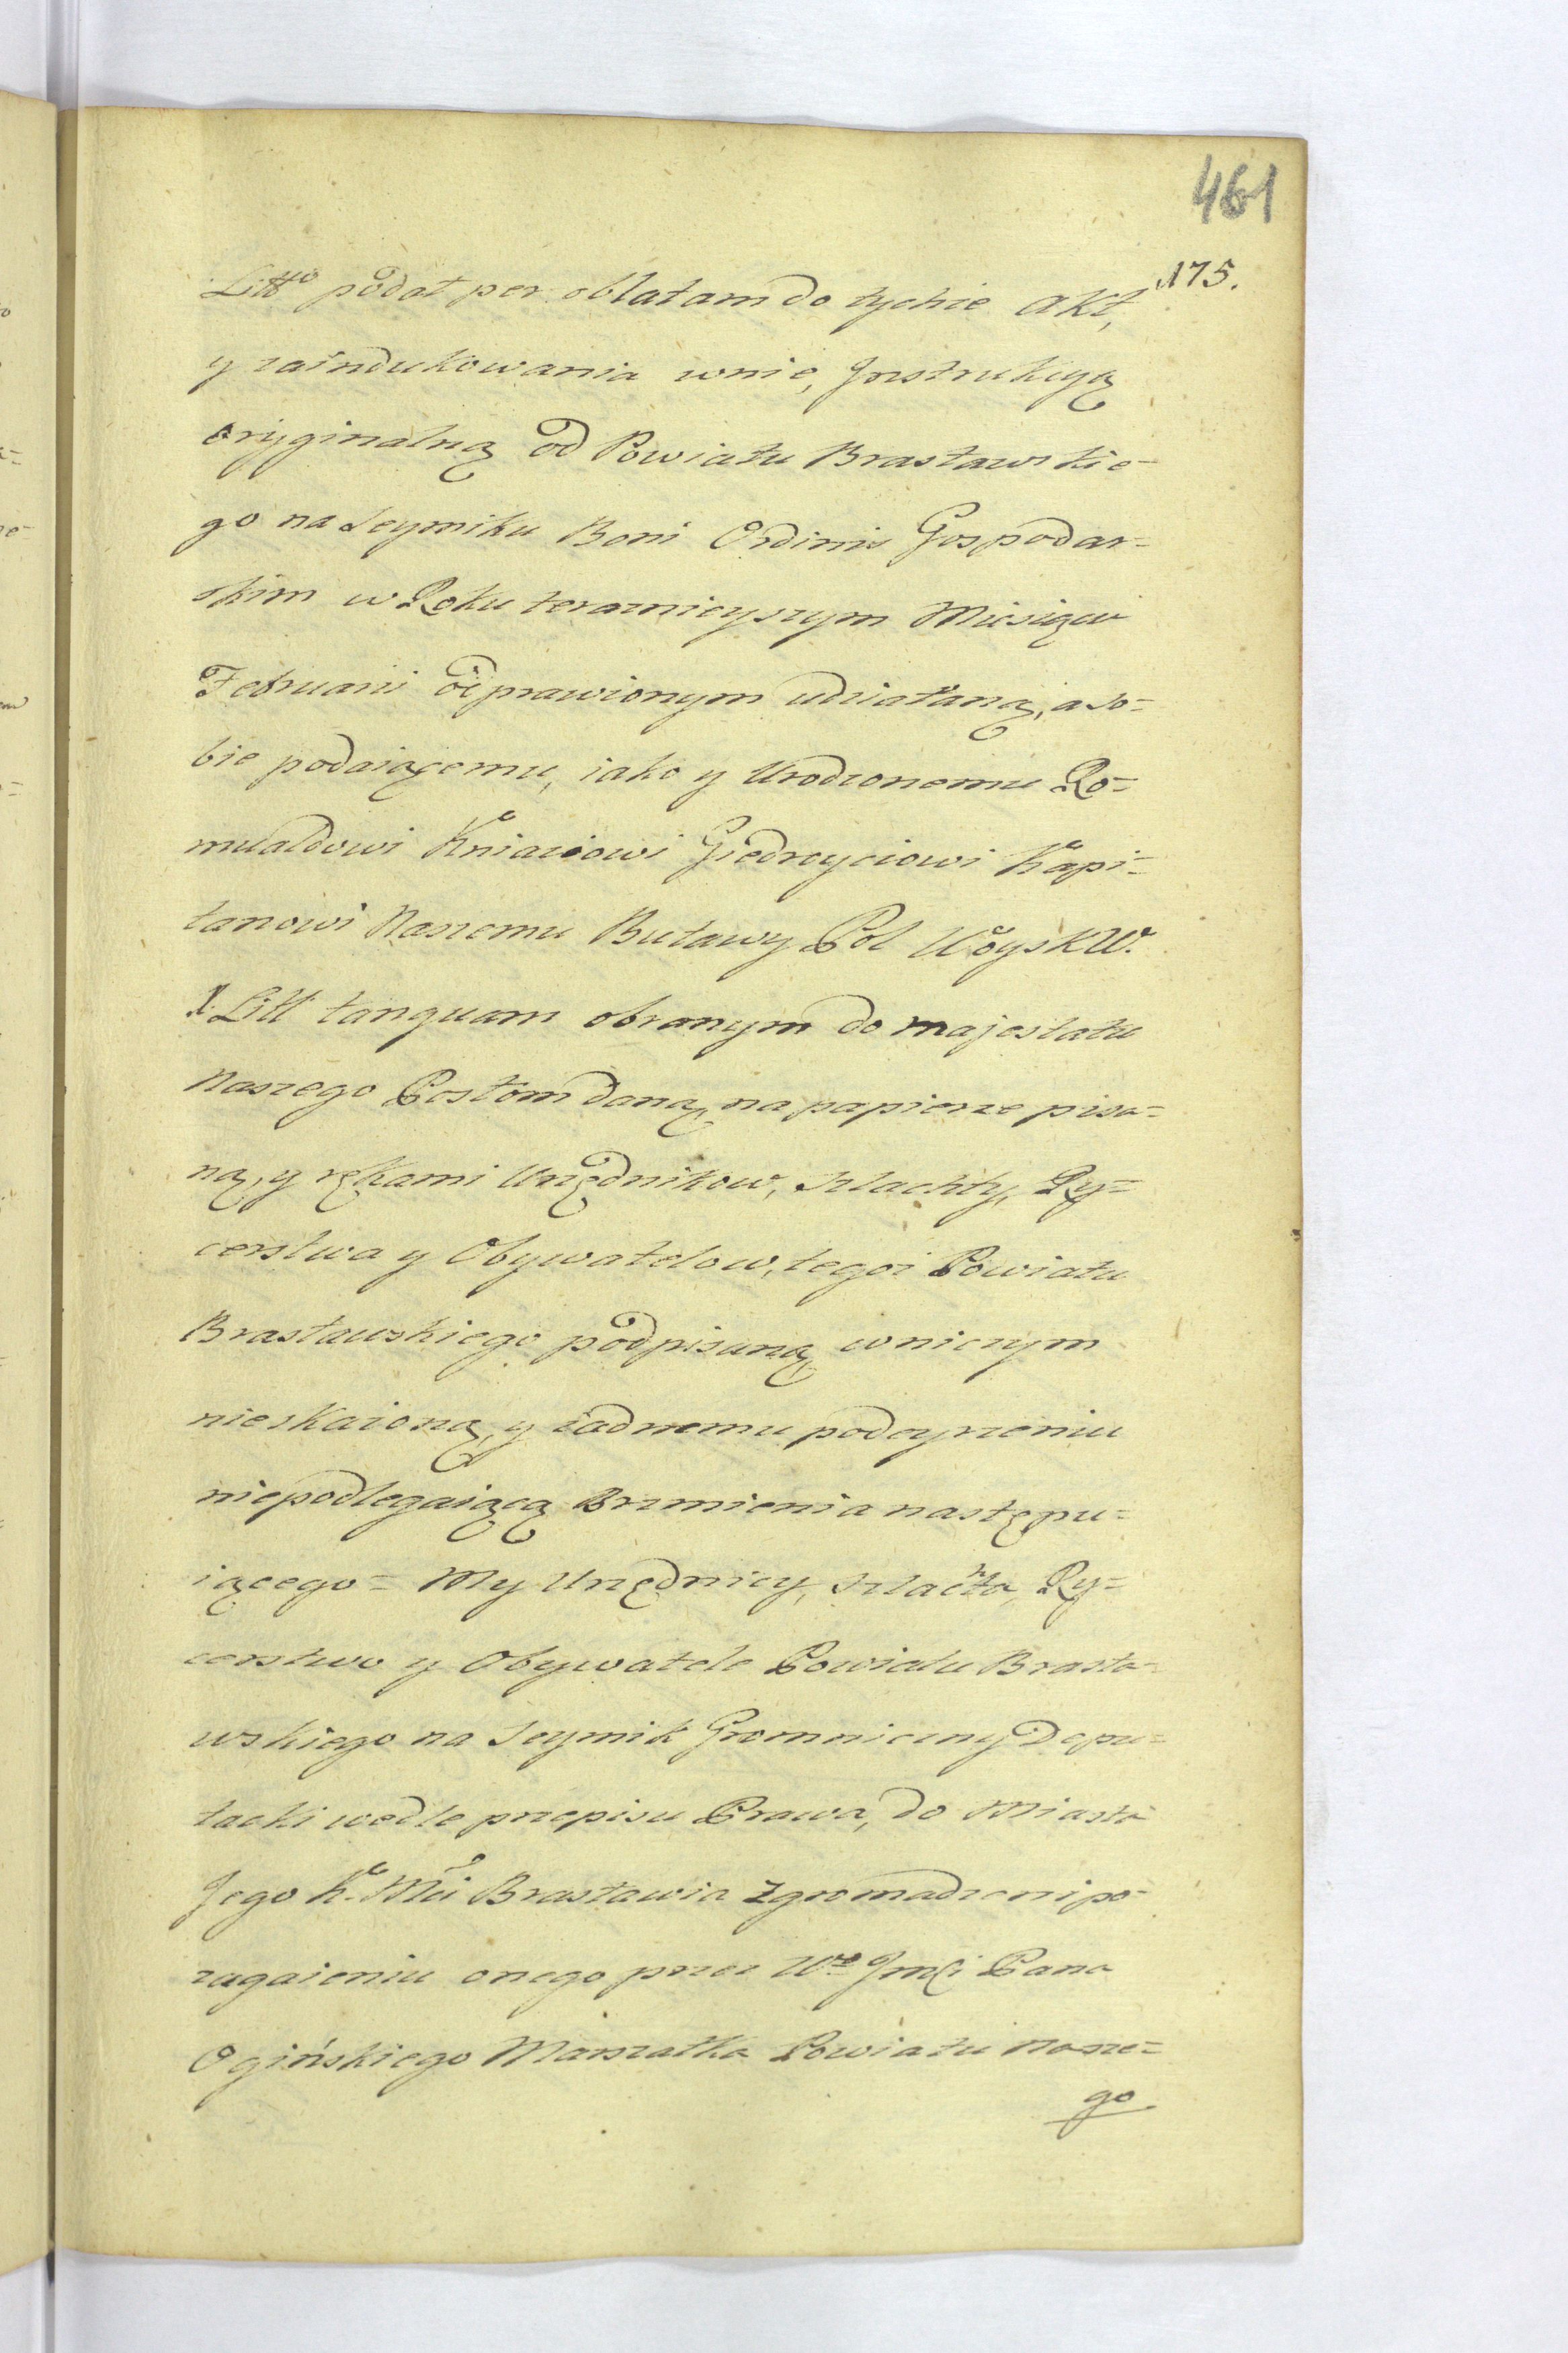 461
175.
Litt° podał per oblatam do tychże Akt,
y zaindukowania wnie, Jnstrukcyą
oryginalną od Powiatu Brasławskie-
go na Seymiku Boni Ordinis Gospodar-
skim w Roku teraznieyszym Miesiąca
Februarii odprawionym udziałaną, a so=
bie podaiącemu, iako y Urodzonemu Ro=
mualdowi Kniaziowi Giedroyciowi Kapi=
tanowi Naszemu Buławy Pol Woysk W.
X. Litt tanquam obranym do majestatu
Naszego Posłom daną, na papierze pisa=
ną, y rękami Urzędnikow, Szlachty, Ry=
cerstwa y Obywatelow, tegoż Powiatu
Brasławskiego podpisaną wniczym
nieskażoną, y żadnemu podeyrzeniu
niepodlegaiącą Brzmienia następu=
iącego = My Urzędnicy, Szlachta, Ry=
cerstwo y Obywatele Powiatu Brasła=
wskiego na Seymik Gromniczny Depu=
tacki wedle przepisu Prawa, do Miasta
Jego K. Mci Brasławia zgromadzeni po-
zagaieniu onego przez Wgo Jmci Pana
Ogińskiego Marszałka Powiatu Nasze=
go